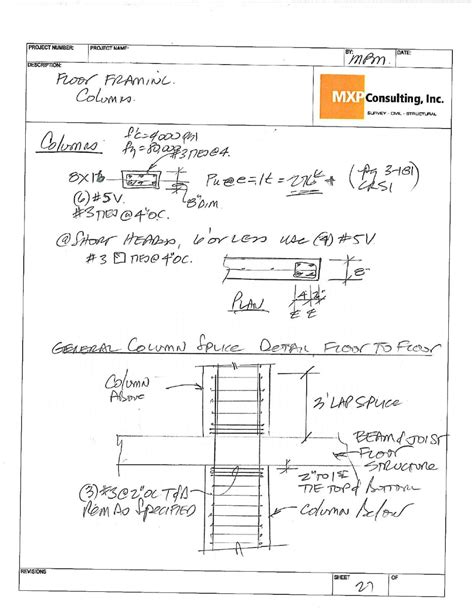 PROJECT NUMBER:
PROJECT NAME:
BY:
MPM
DATE:
DESCRIPTION:
FLOOR FRAMING.
COLUMNS.
MXP Consulting, Inc.
SURVEY · CIVIL · STRUCTURAL
COLUMNS
f'c=4000 PSI
#3 TIES @ 4.
8X16
Pu @ e=1t =
(Pg 3-181)
CRSI
(6) #5V.
8" DIM
#3 TIES @ 4"OC.
@ SHORT HEADERS, 6' OR LESS USE (4) #5V
#3 TIES @ 4"OC.
8"
PLAN
4"
2"
GENERAL COLUMN SPLICE DETAIL FLOOR TO FLOOR
COLUMN
ABOVE
3' LAP SPLICE
BEAM & JOIST
FLOOR
STRUCTURE
2" TO 1st
TIE TOP & BOTTOM
(3) #3 @ 2"OC T&B
REM AS SPECIFIED
COLUMN BELOW
REVISIONS
SHEET
27
OF